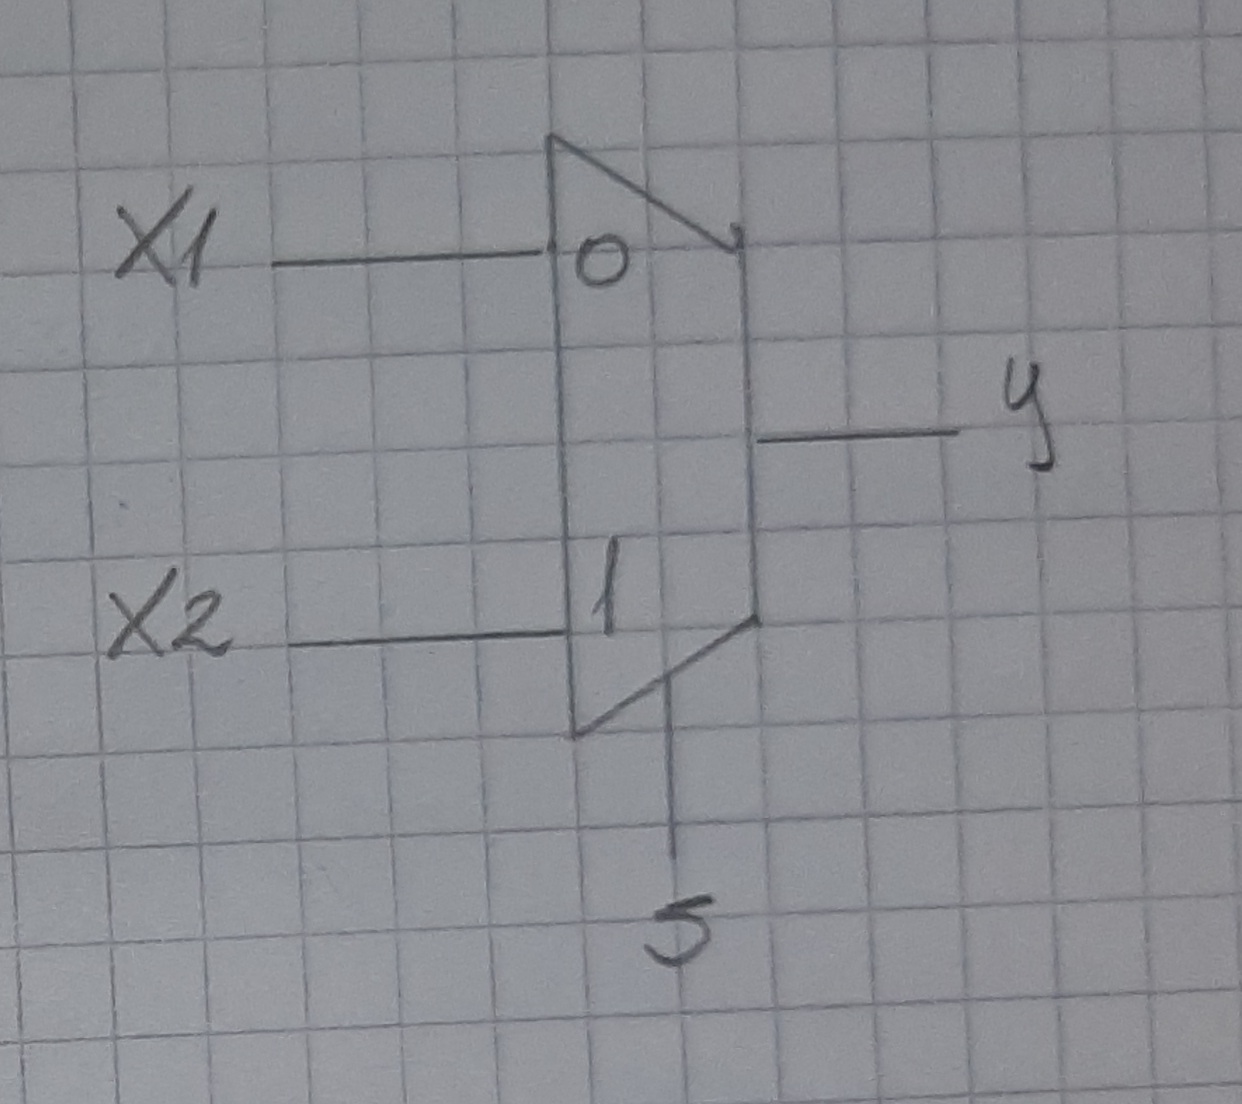 X1
0
y
X2
1
S